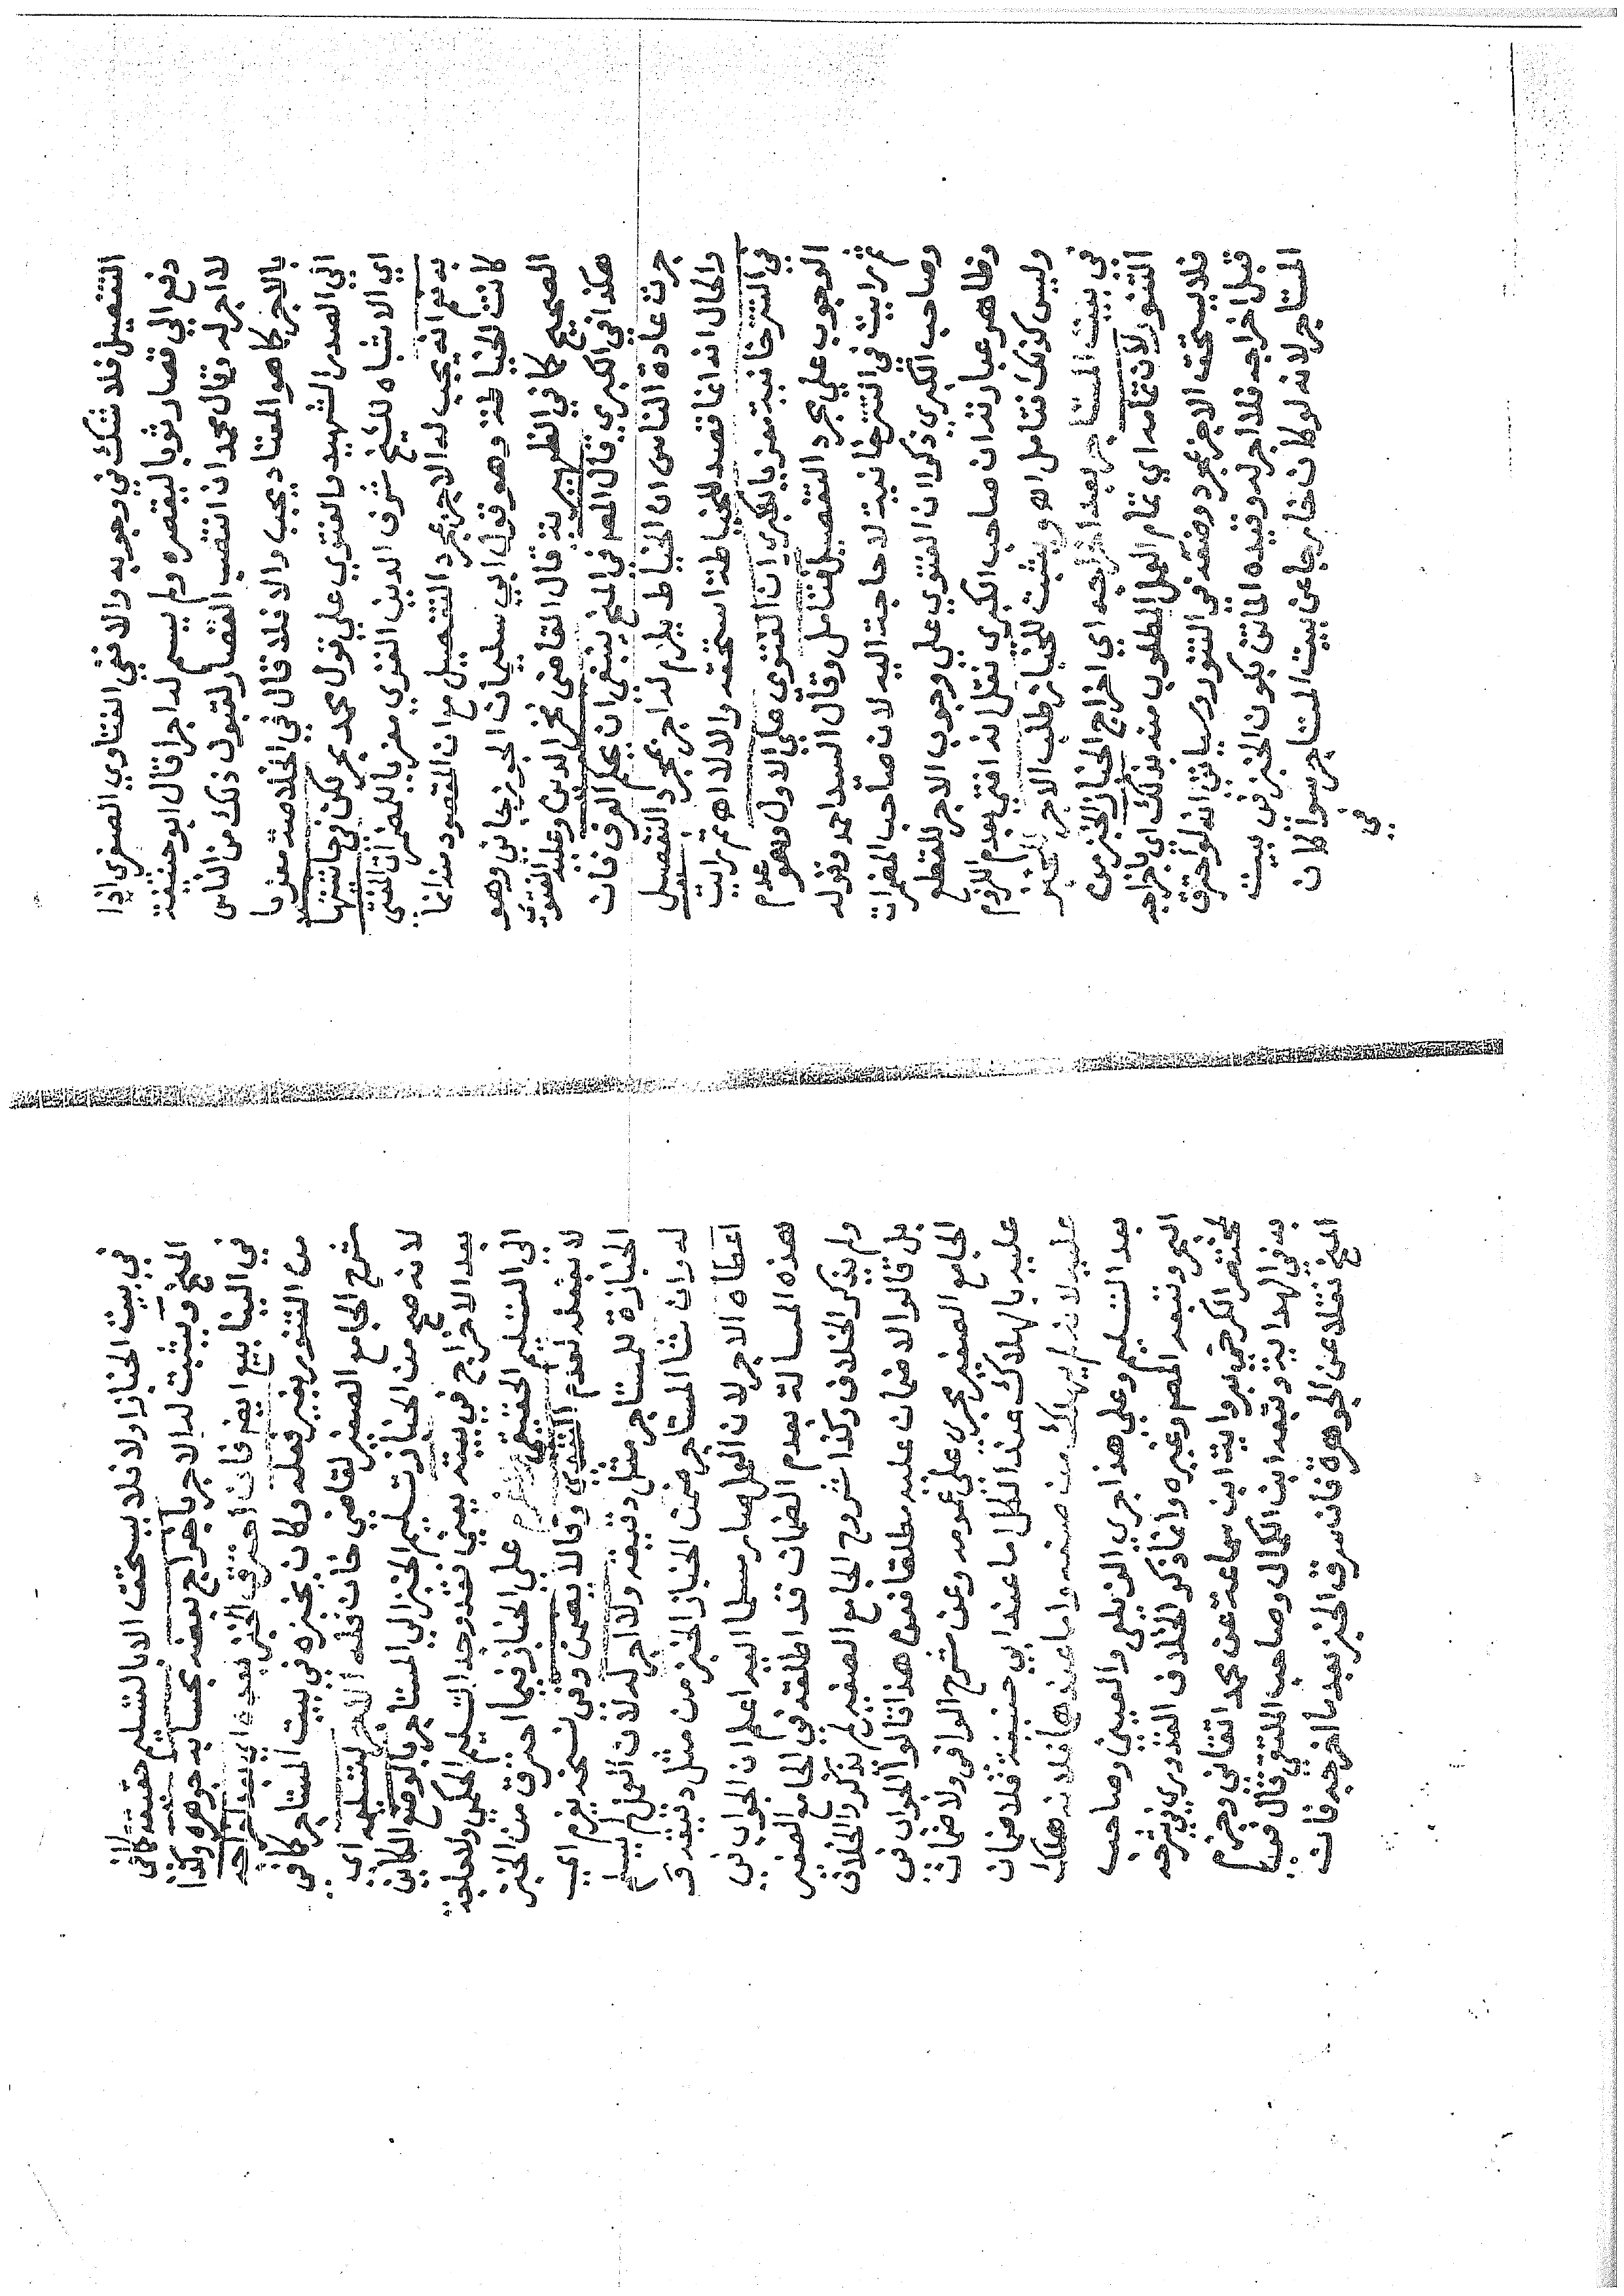 التفصيل فلا شك في وجوبه والا ففي الفتاوي الصغرى اذا
دفع الي قصار ثوبا ليقصره ولم يسم له اجرا قال ابو حنيفة
لا اجر له وقال محمد ان انتصب القصار لقبول ذلك من الناس
بالاجر كما هو المعتاد يجب والا فلا قال في الخلاصة معزيا
الي الصدر الشهيد والفتوي علي قول محمد بحر لكن في حاشيتها
اي الاشباه للشيخ شرف الدين الغزي معزيا للمضمرات المفتى
به مع انه يجب له الاجر بمجرد التفصيل مع ان المقصود منه انما
كانت الخياطة وهو قول ابي سليمان الجوزجاني وهو
الصحيح كما في الظهيرية قال القاضي فخر الدين وعليه الفتوى
هكذا في الكبري قال المص في المنح ينبغي ان يحكم العرف فان
جرت عادة الناس ان الخياط يلزم له اجر بمجرد التفصيل
والحال انه انما قصد للخياطة استحقه والا لا اهـ ثم رايت
في التترخانية معزيا للكبرى ان الفتوي علي الاول وهو عدم
الوجوب علي مجرد التفصيل فتامل وقال السيد احمد وقوله
ثم رايت في التترخانية لا حاجة اليه لان صاحب المضمرات
وصاحب الكبري ذكرا ان الفتوي علي وجوب الاجر للقطع
وظاهر عبارته ان صاحب الكبري نقل انه افتي بعدم اللزوم
وليس كذلك فتامل اهـ ويثبت للخباز طلب الاجر للخبز
في بيت المستاجر بعد اخراجه اي اخراج الخباز الخبز من
التنور لان تمامه اي تمام العمل المطلوب منه بذلك اي باخراجه
فلا يستحق الاجر بمجرد وضعه في التنور وسياتي انه لو احترق
قبل اخراجه فلا اجر له وقيده الماتن بكون الخبز في بيت
المستاجر لانه لو كان خارجا عن بيت المستاجر سوا كان
في
في بيت الخباز اولا فلا يستحق الا بالتسليم حقيقة كما في
المنح ويثبت له الاجر باخراج بعضه بحسابه جوهره وكذا
في الينابيع ايضا فان احترق الخبز بعده اي بعد اخراجه
من التنور بغير فعله وكان يخبزه في بيت المستاجر كما في
شرح الجامع الصغير لقاضي خان فله الاجر لتسليمه اي
لانه صح من الخباز تسليم الخبز الي المستاجر بالوضع الكاين
بعد الاخراج في بيته يعني فقد وجد التسليم الحكمي ولا حاجة
الي التسليم الحقيقي ولا غرم علي الخباز فيما احترق من الخبز
لا بفعله لعدم التعدي وقالا يضمن وفي نسخة يغرم اي
الخبازة للمستاجر مثل دقيقه ولا اجر له لان العمل لم يسلم
له وان شا المستاجر ضمن الخباز الخبز من مثل دقيقه و
اعطاه الاجر لان العمل صار مسلما اليه اعلم ان الجواب في
هذه المسالة بعدم الضمان قد اطلقه في الجامع الصغير
ولم يذكر الخلاف وكذا شروح الجامع الصغير لم يذكروا الخلاف
بل قالوا لا ضمان عليه مطلقا فعن هذا قالوا الجواب في
الجامع الصغير مجرى علي عمومه وعن شرح الوافي ولا ضمان
عليه بالهلاك عند الكل اما عند ابي حنيفة فلا ضمان
عليه لانه لم يهلك من صنعه واما عندهما فلانه هلك
بعد التسليم وعلي هذا جري الزيلعي والعيني وصاحب
البحر وتبعه المص وغيره وانما ذكر الخلاف القدوري في شرحه
لمختصر الكرخي برواية ابن سماعة عن محمد اتقاني وجزم
به في الهداية وتبعه ابن الكمال وصاحب الملتقي قال في
المنح نقلا عن الجوهرة فان سرق الخبز بعد ما اخرجه فان